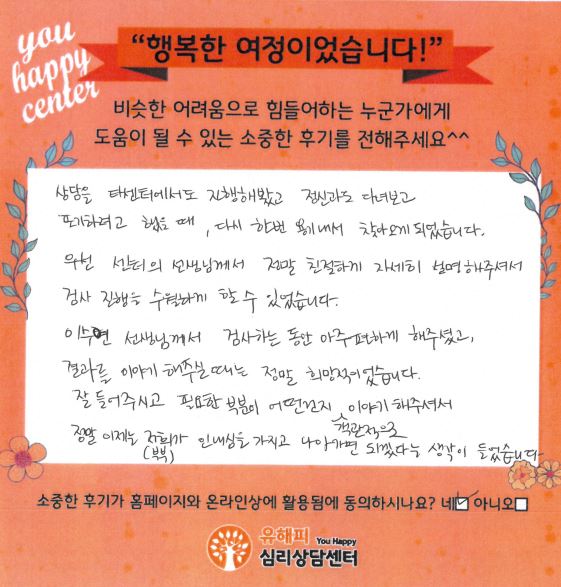 you
happy
center
“행복한 여정이었습니다!”
비슷한 어려움으로 힘들어하는 누군가에게
도움이 될 수 있는 소중한 후기를 전해주세요^^
상담을 타센터에서도 진행해봤고 정신과도 다녀보고
포기하려고 했을 때, 다시 한번 용기내서 찾아오게 되었습니다.
우선 센터의 선생님께서 정말 친절하게 자세히 설명해주셔서
검사 진행을 수월하게 할 수 있었습니다.
이수연 선생님께서 검사하는 동안 아주 편하게 해주셨고,
결과를 이야기 해주실 때는 정말 희망적이었습니다.
잘 들어주시고 필요한 부분이 어떤건지 이야기 해주셔서
객관적으로
정말 이제는 저희가 인내심을 가지고 나아가면 되겠다는 생각이 들었습니다
(부부)
소중한 후기가 홈페이지와 온라인상에 활용됨에 동의하시나요? 네☑ 아니오☐
유해피 You Happy
심리상담센터